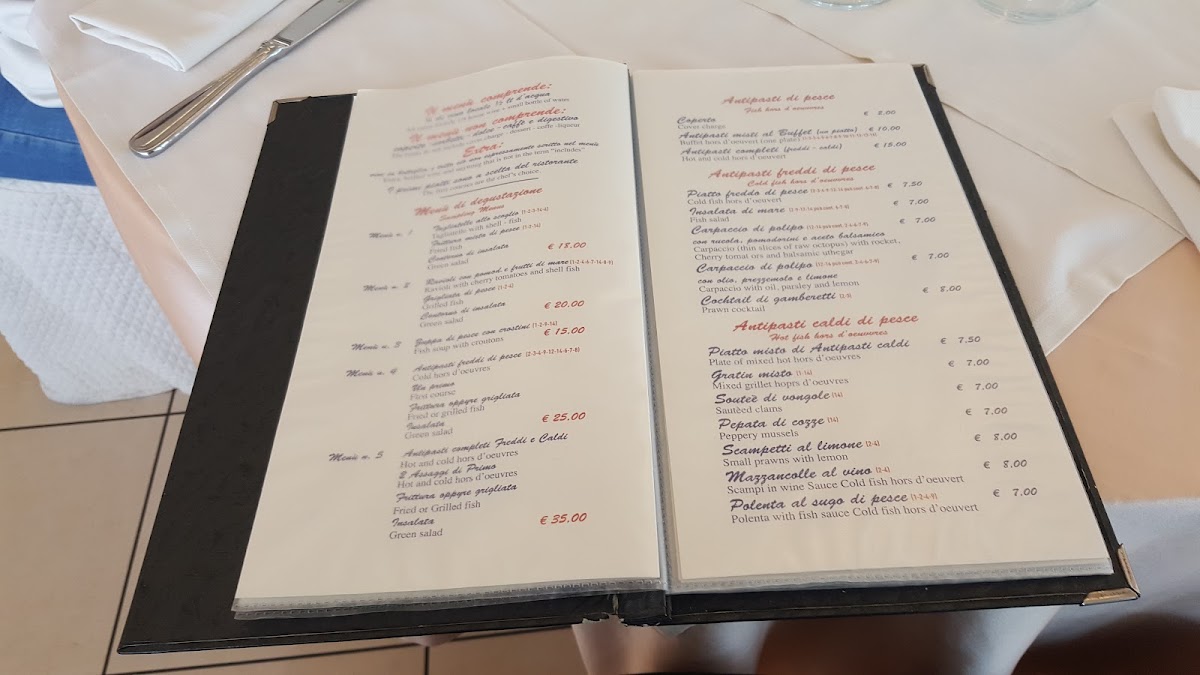 Il menù comprende:
¼ di vino locale ½ lt d'acqua
Il menù non comprende:
coperto - dolce - caffè e digestivo
Extra:
e tutto ciò non espressamente scritto nel menù
and anything that is not in the term "includes"
I primi piatti sono a scelta del ristorante
are the chef's choice.
Menù di degustazione
Sampling Menus
Menù n. 1
Tagliatelle allo scoglio (1-2-3-14-4)
Tagliatelle with shell - fish
Frittura mista di pesce (1-2-14)
Fried fish
Contorno di insalata
Green salad
€ 18.00
Menù n. 2
Ravioli con pomod e frutti di mare (1-2-4-6-7-14-8-9)
Ravioli with cherry tomatoes and shell fish
Grigliata di pesce (1-2-4)
Grilled fish
Contorno di insalata
Green salad
€ 20.00
Menù n. 3
Zuppa di pesce con crostini (1-2-9-14)
Fish soup with croutons
€ 15.00
Menù n. 4
Antipasti freddi di pesce (2-3-4-9-12-14-6-7-8)
Cold hors d'oeuvres
Un primo
First course
Frittura oppyre grigliata
Fried or grilled fish
Insalata
Green salad
€ 25.00
Menù n. 5
Antipasti completi Freddi e Caldi
Hot and cold hors d'oeuvres
2 Assaggi di Primo
Hot and cold hors d'oeuvres
Frittura oppyre grigliata
Fried or Grilled fish
Insalata
Green salad
€ 35.00
Antipasti di pesce
Fish hors d'oeuvres
Coperto € 8.00
Cover charge
Antipasti misti al Buffet (un piatto) € 10.00
Buffet hors d'oeuvert (one plate)
Antipasti completi (freddi - caldi) € 15.00
Hot and cold hors d'oeuvert
Antipasti freddi di pesce
Cold fish hors d'oeuvres
Piatto freddo di pesce € 7.50
Cold fish hors d'oeuvert
Insalata di mare € 7.00
Fish salad
Carpaccio di polipo € 7.00
con rucola, pomodorini e aceto balsamico
Carpaccio (thin slices of raw octopus) with rocket,
Cherry tomat ors and balsamic uthegar
Carpaccio di polipo € 7.00
con olio, prezzemolo e limone
Carpaccio with oil, parsley and lemon
Cocktail di gamberetti (2-3) € 8.00
Prawn cocktail
Antipasti caldi di pesce
Hot fish hors d'oeuvres
Piatto misto di Antipasti caldi € 7.50
Plate of mixed hot hors d'oeuvres
Gratin misto (1-14) € 7.00
Mixed grillet hoprs d'oeuvres
Souteè di vongole (14) € 7.00
Sautèed clams
Pepata di cozze (14) € 7.00
Peppery mussels
Scampetti al limone (2-4) € 8.00
Small prawns with lemon
Mazzancolle al vino (2-4) € 8.00
Scampi in wine Sauce Cold fish hors d'oeuvert
Polenta al sugo di pesce (1-2-4-9) € 7.00
Polenta with fish sauce Cold fish hors d'oeuvert